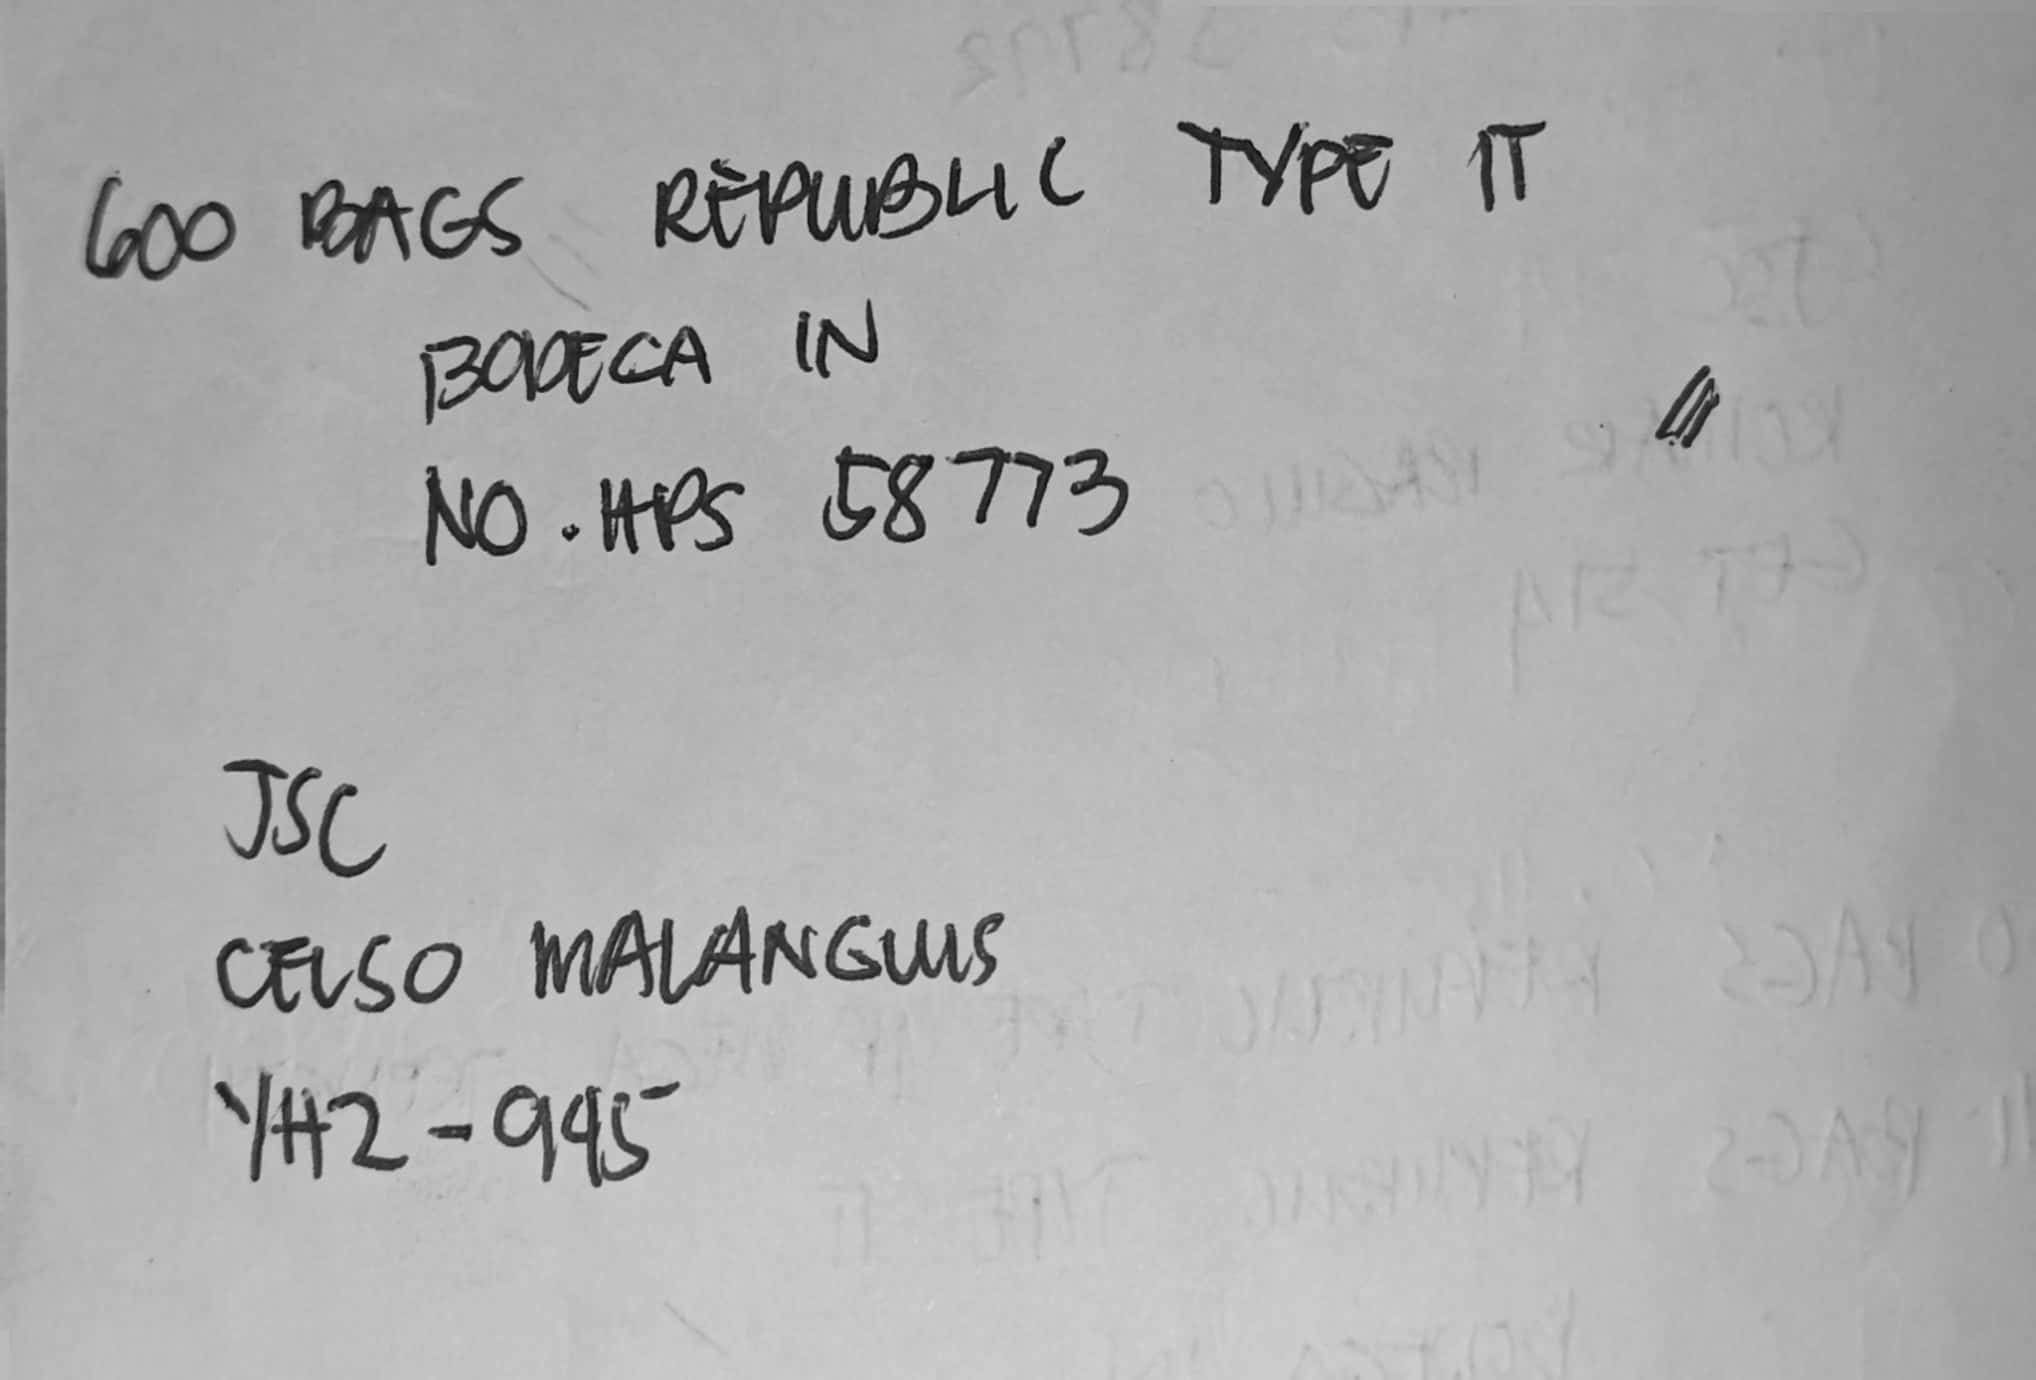 600 BAGS REPUBLIC TYPE IT
BODEGA IN
NO. HPS 58773
JSC
CELSO MALANGUIS
YHZ-995